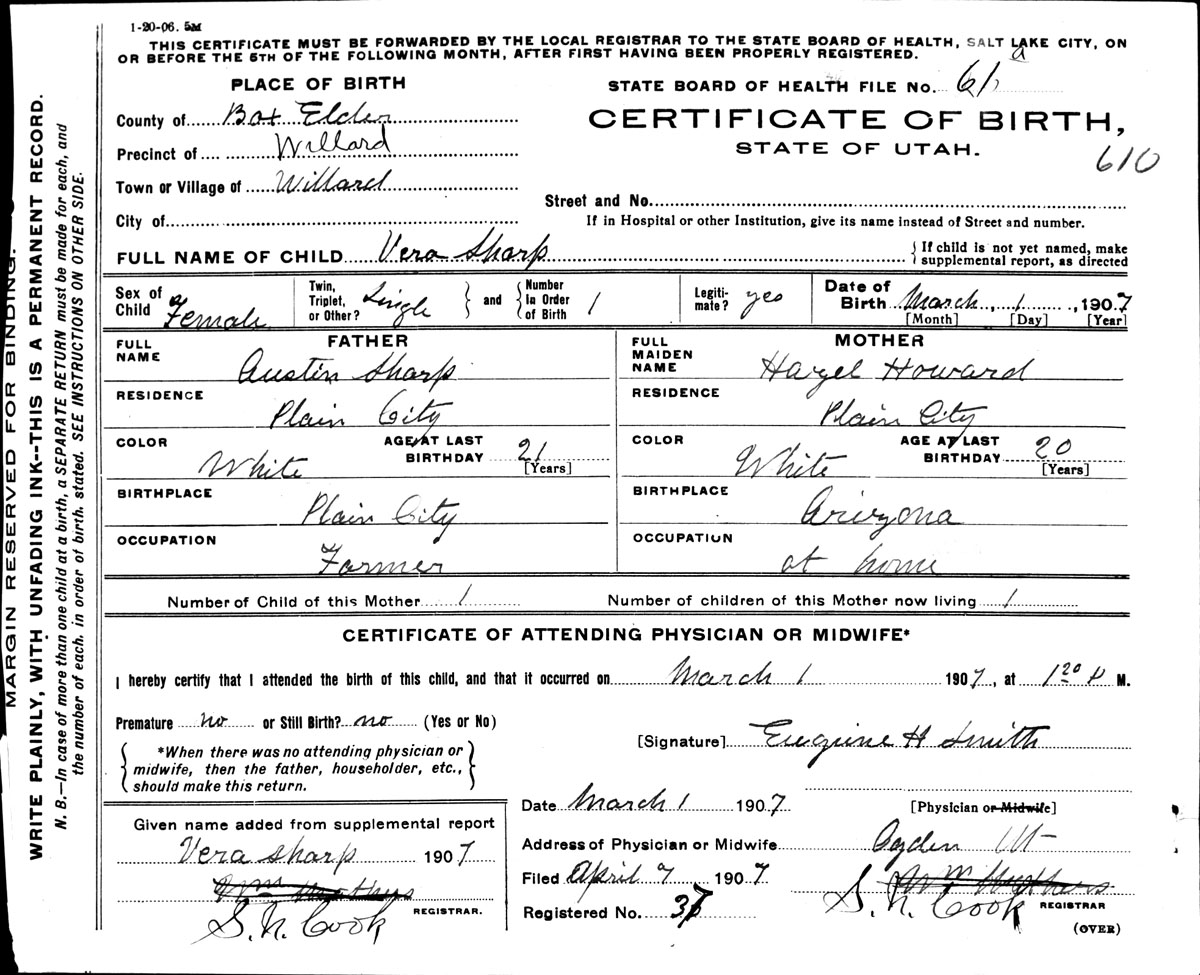 1-20-06. 5M
THIS CERTIFICATE MUST BE FORWARDED BY THE LOCAL REGISTRAR TO THE STATE BOARD OF HEALTH, SALT LAKE CITY, ON
OR BEFORE THE 5TH OF THE FOLLOWING MONTH, AFTER FIRST HAVING BEEN PROPERLY REGISTERED.
a
PLACE OF BIRTH
STATE BOARD OF HEALTH FILE No. 61
County of Box Elder
CERTIFICATE OF BIRTH,
Precinct of Willard
STATE OF UTAH.
610
Town or Village of Willard
Street and No.
City of
If in Hospital or other Institution, give its name instead of Street and number.
FULL NAME OF CHILD Vera Sharp
{If child is not yet named, make supplemental report, as directed
Sex of Child Female
Twin, Triplet, or Other? Single } and { Number In Order of Birth 1
Legitimate? yes
Date of Birth March, 1, 1907
[Month] [Day] [Year]
FATHER
FULL NAME Austin Sharp
RESIDENCE Plain City
COLOR White
AGE AT LAST BIRTHDAY 21
[Years]
BIRTHPLACE Plain City
OCCUPATION Farmer
MOTHER
FULL MAIDEN NAME Hazel Howard
RESIDENCE Plain City
COLOR White
AGE AT LAST BIRTHDAY 20
[Years]
BIRTHPLACE Arizona
OCCUPATION at home
Number of Child of this Mother 1
Number of children of this Mother now living 1
CERTIFICATE OF ATTENDING PHYSICIAN OR MIDWIFE*
I hereby certify that I attended the birth of this child, and that it occurred on March 1 1907, at 1 20 P M.
Premature no or Still Birth? no (Yes or No)
*When there was no attending physician or
midwife, then the father, householder, etc.,
should make this return.
[Signature] Eugine H Smith
Date March 1 1907
[Physician or Midwife]
Given name added from supplemental report
Vera Sharp 1907
S. N. Cook
REGISTRAR.
Address of Physician or Midwife Ogden Ut
Filed April 7 1907
S. N. Cook REGISTRAR
Registered No.
(OVER)
MARGIN RESERVED FOR BINDING.
WRITE PLAINLY, WITH UNFADING INK--THIS IS A PERMANENT RECORD.
N. B.—In case of more than one child at a birth, a SEPARATE RETURN must be made for each, and
the number of each, in order of birth, stated. SEE INSTRUCTIONS ON OTHER SIDE.